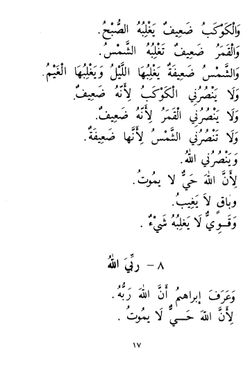 وَالْكَوْكَبُ ضَعِيفٌ يَغْلِبُهُ الصُّبْحُ.
وَالْقَمَرُ ضَعِيفٌ تَغْلِبُهُ الشَّمْسُ.
وَالشَّمْسُ ضَعِيفَةٌ يَغْلِبُهَا اللَّيْلُ وَيَغْلِبُهَا الْغَيْمُ.
وَلَا يَنْصُرُنِي الْكَوْكَبُ لِأَنَّهُ ضَعِيفٌ.
وَلَا يَنْصُرُنِي الْقَمَرُ لِأَنَّهُ ضَعِيفٌ.
وَلَا تَنْصُرُنِي الشَّمْسُ لِأَنَّهَا ضَعِيفَةٌ.
وَيَنْصُرُنِي اللهُ.
لِأَنَّ اللهَ حَيٌّ لَا يَمُوتُ.
وَبَاقٍ لَا يَغِيبُ.
وَقَوِيٌّ لَا يَغْلِبُهُ شَيْءٌ.
٨ - رَبِّيَ اللهُ
وَعَرَفَ إبراهيمُ أَنَّ اللهَ رَبُّهُ.
لِأَنَّ اللهَ حَيٌّ لَا يَمُوتُ.
١٧